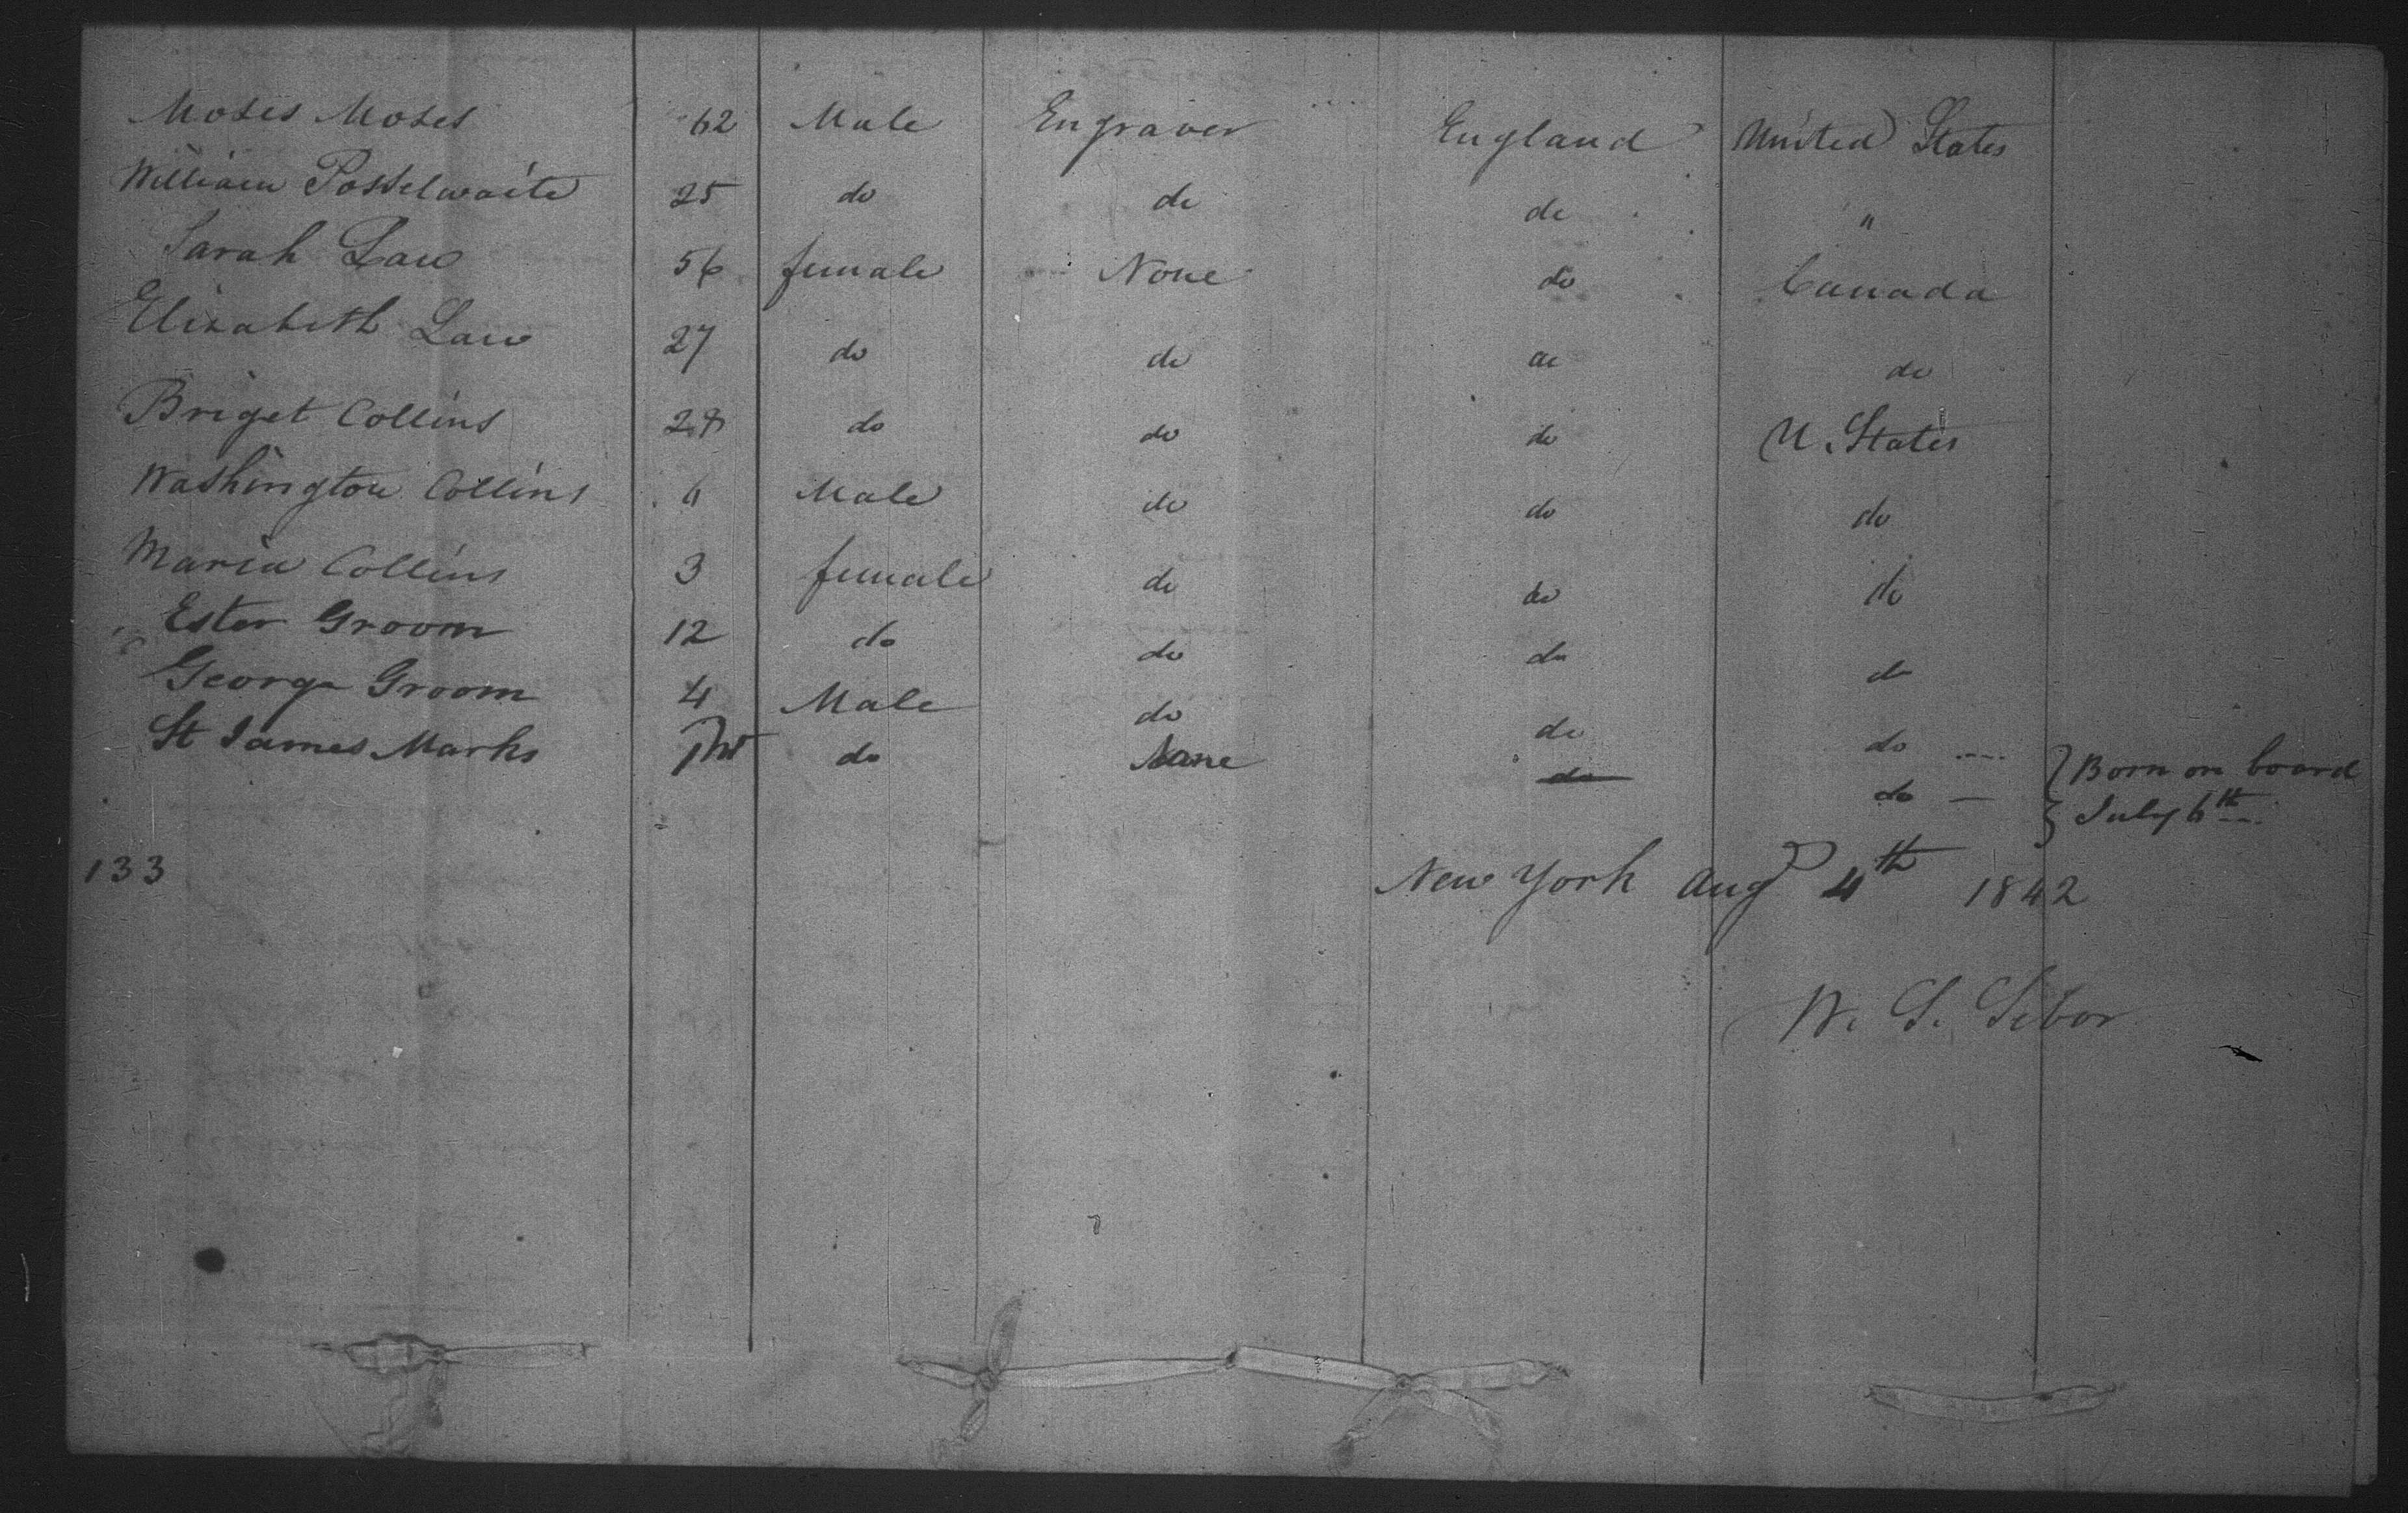 Moses Moses 62 Male Engraver England United States
William Posselwaite 25 do do do "
Sarah Law 56 female None do Canada
Elizabeth Law 27 do do do do
Briget Collins 28 do do do U. States
Washington Collins 6 Male do do do
Maria Collins 3 female do do do
Ester Groom 12 do do do do
George Groom 4 Male do do do
St James Marks do None do do Born on board
July 6th
133
New York Aug 4th 1842
W. S. Sebor